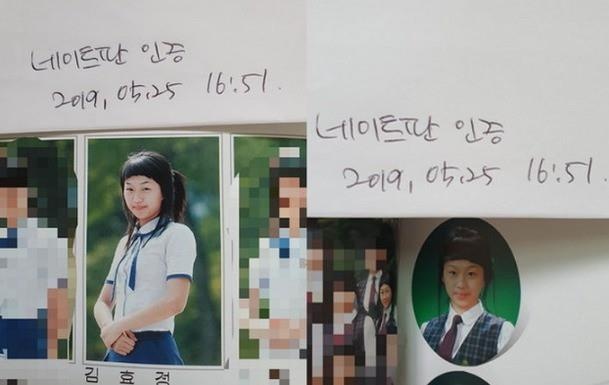 네이트판 인증
2019, 05.25 16:51.
김효정
네이트판 인증
2019, 05.25 16:51.